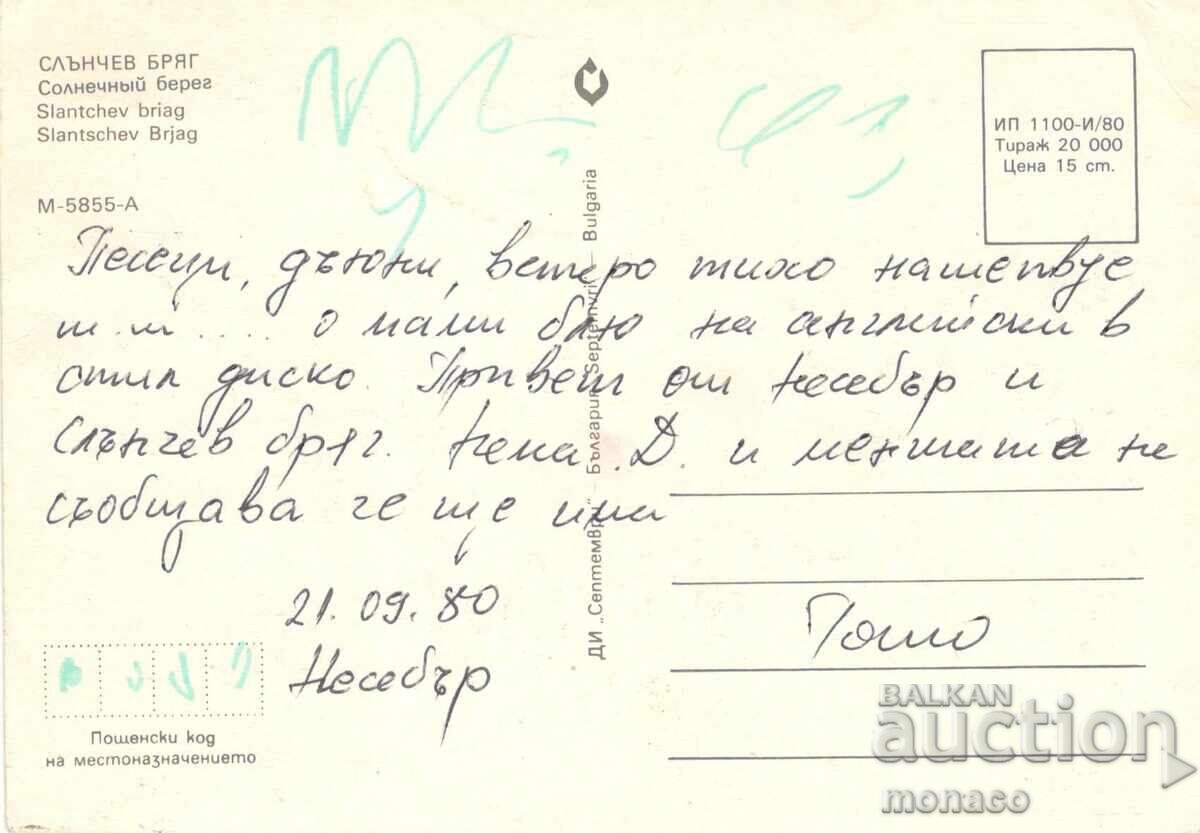 СЛЪНЧЕВ БРЯГ
Солнечный берег
Slantchev briag
Slantschev Brjag
М-5855-А
ИП 1100-И/80
Тираж 20 000
Цена 15 ст.
дюни, ветеро тихо нашепвуе
т.ш .... о мами блю на английски в
стил диско. Привет от Несебър и
Слънчев бряг. Нема .Д. и ментата не
съобщава че ще има
21.09.80
Несебър
Гошо
Пощенски код
на местоназначението
ДИ „Септември“ – България Septemvri – Bulgaria
BALKAN
auction
monaco